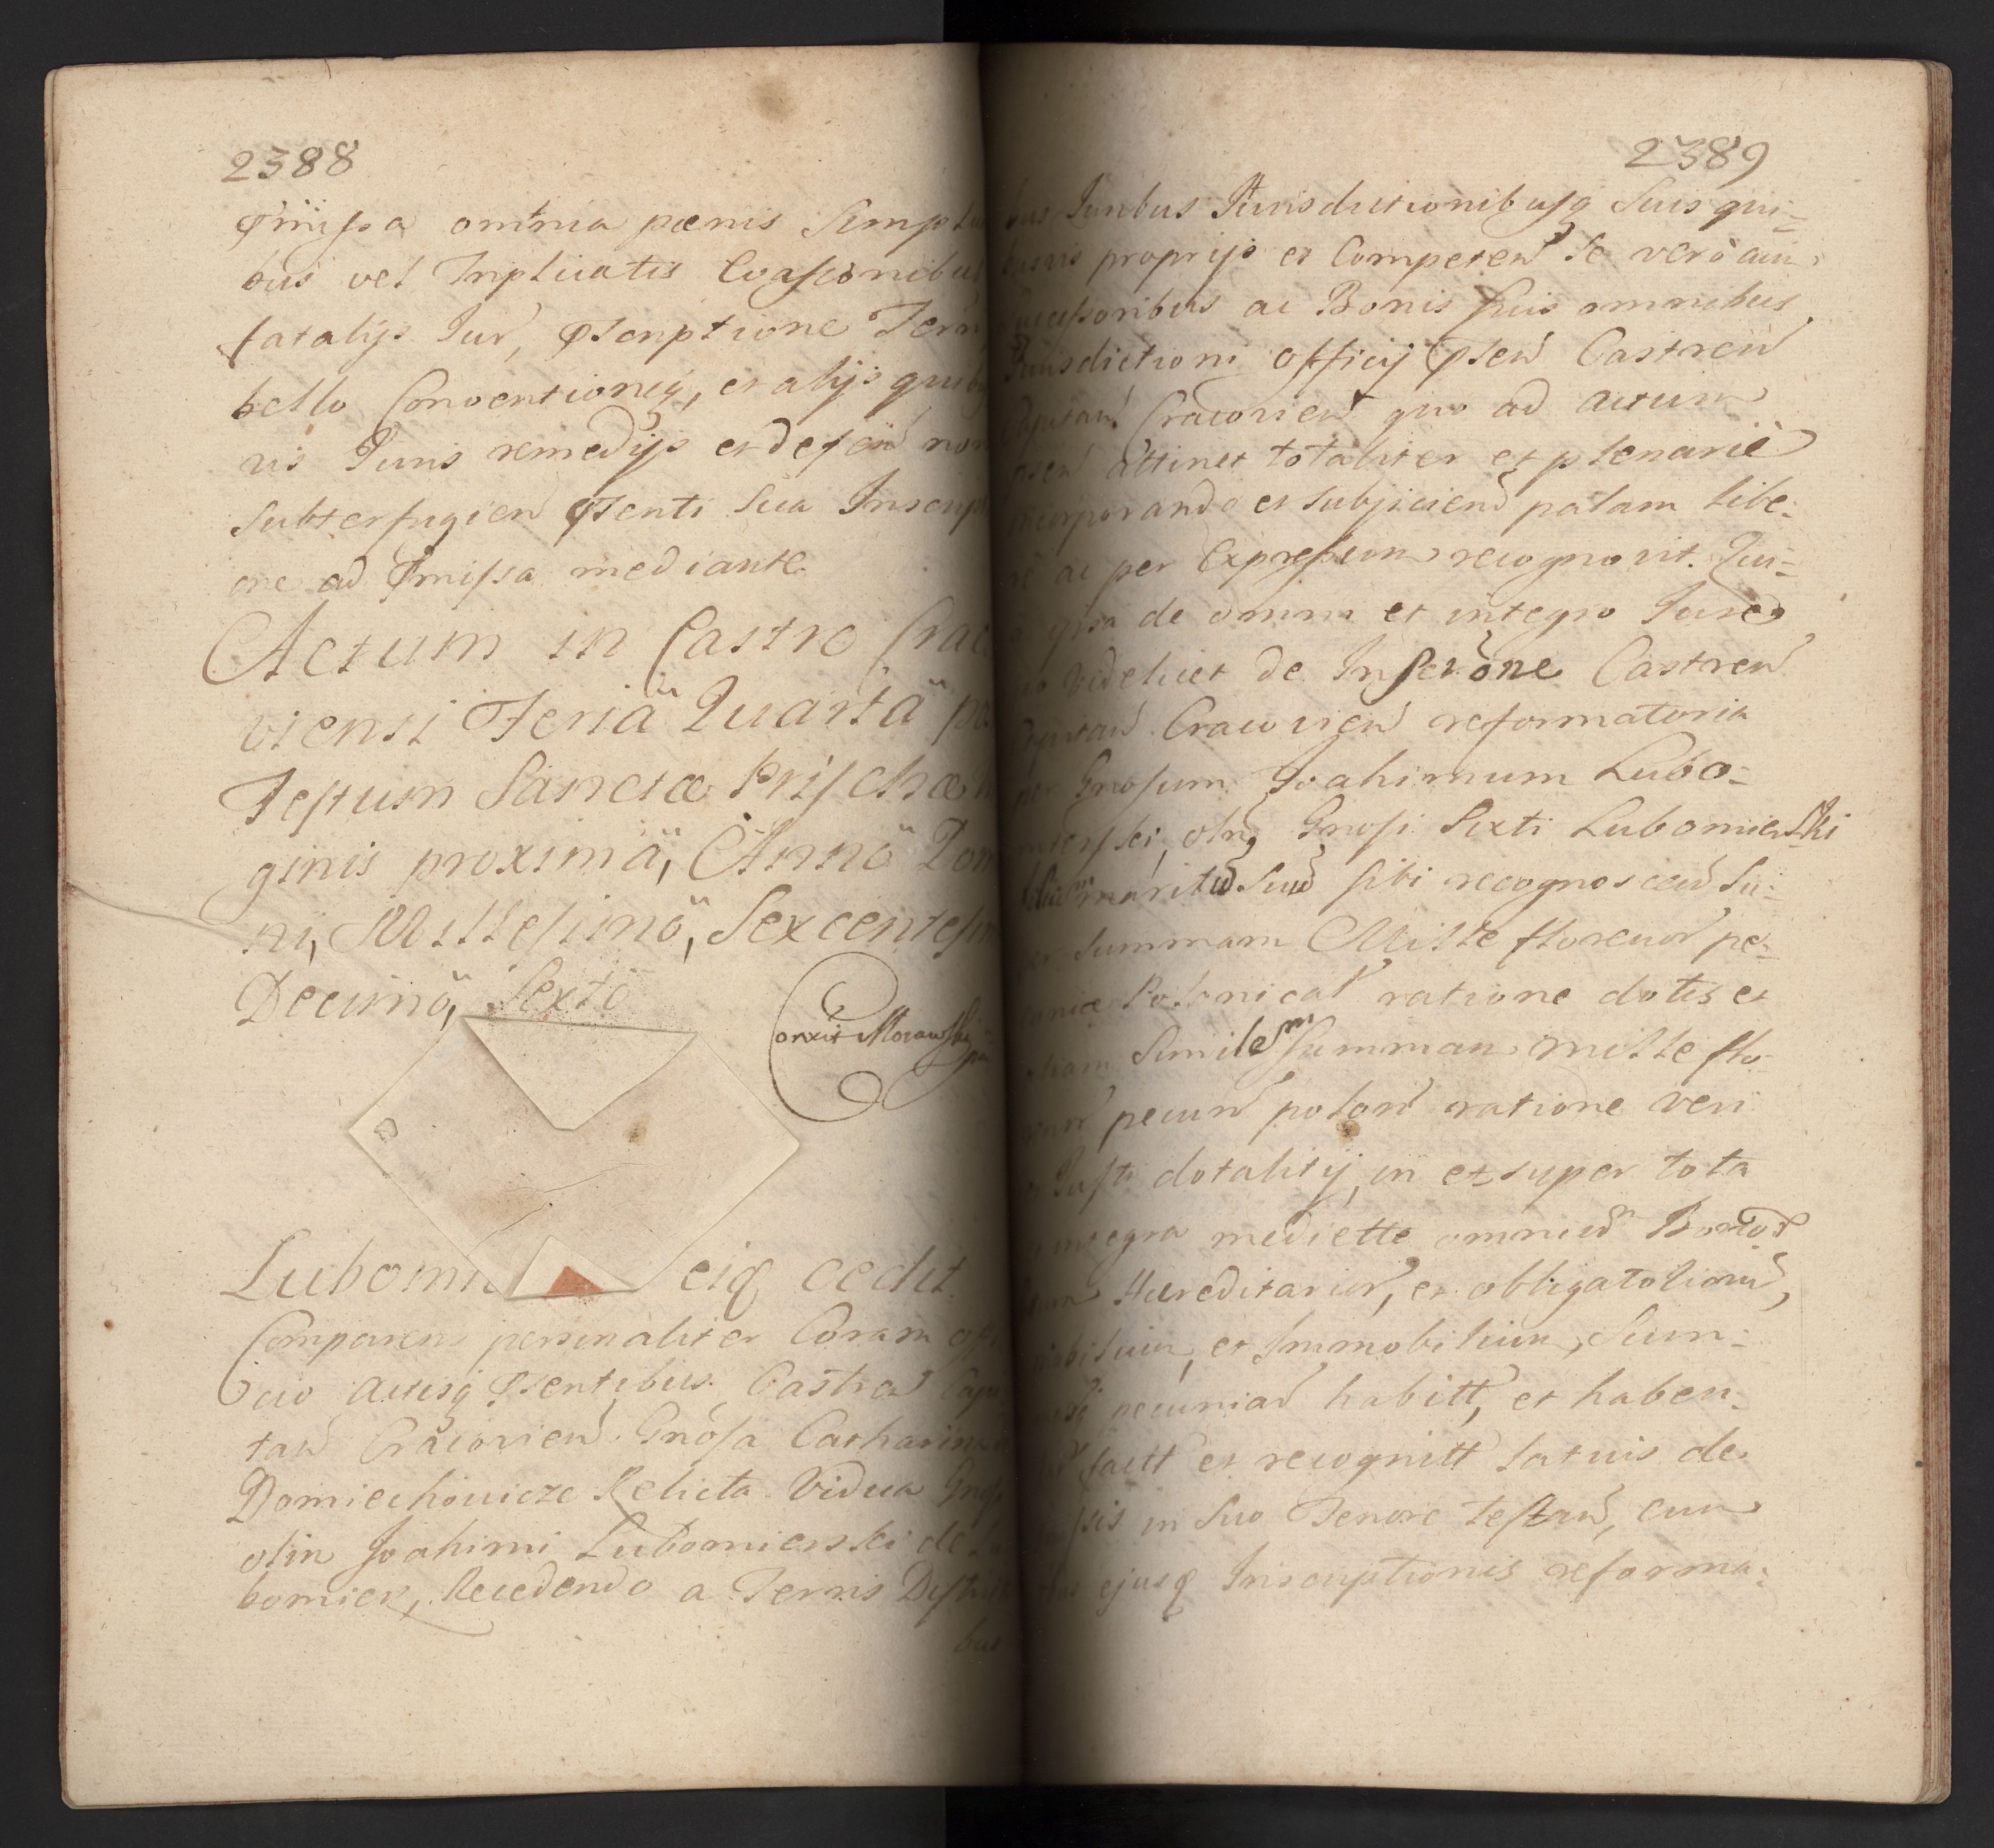 2388
Pmissa omnia pœnis Simpli
bus vel Triplicatis Evasionibus
fatalijs Jur, Pscriptione Terr
bello Conventioneq, et alijs quibus
vis Juris remedijs et defen non
Subterfugien Psenti Sua Inscripti
one ad Pmissa mediante
Actum in Castro Craco
viensi Feriä Quartä po
Festum Sanctæ Prischæ
ginis proximä, Annö Dom
ni, Millesimö, Sexcentesim
Decimö, Sextö
orrexit Morawski
Lubomi eiq cedit
Comparens personaliter Coram offi
cio Actisq Psentibus Castren Capi
tan Cracovien Gnosa Catharina
Domiechowicze Relicta Vidua Gnosi
olim Joahimi Lubomierski de Lu
bomierz, Recedendo a Terris Distri
bus
2389
bus Juribus Jurisdictionibusq Suis qui=
busvis proprijs et Competen Se vero cum
successoribus ac Bonis suis omnibus
Jurisdictioni officij Psen Castren
Capitan Cracovien quo ad actum
psen attinet totaliter et plenariè
incorporando et subjiciend palam libe:
re ac per Expressum recognovit. Qui=
a ipsa de omni et integro Jure
videlicet de Inscrõne Castren
Capitan Cracovien reformatoria
per Gnosum Joahimum Lubo=
mierski, olim Gnosi Sixti Lubomierski
filium maritu Suu sibi recognoscend su:
per Summam Mille florenor pe=
cuniæ Polonical ratione dotis et
aliam Similem Summam mille flo
renor pecun polon ratione veri
et Justi dotalitij, in et super tota
integra mediette omniu Bonor
suorum Hæreditarior, et obbligatoriorū,
mobilium, et Immobilium, Sum=
masq pecuniar habitt, et haben=
dar factt et recognitt latius de
ipsis in Suo Tenore testan, cum
ejusq Inscriptionis reforma: